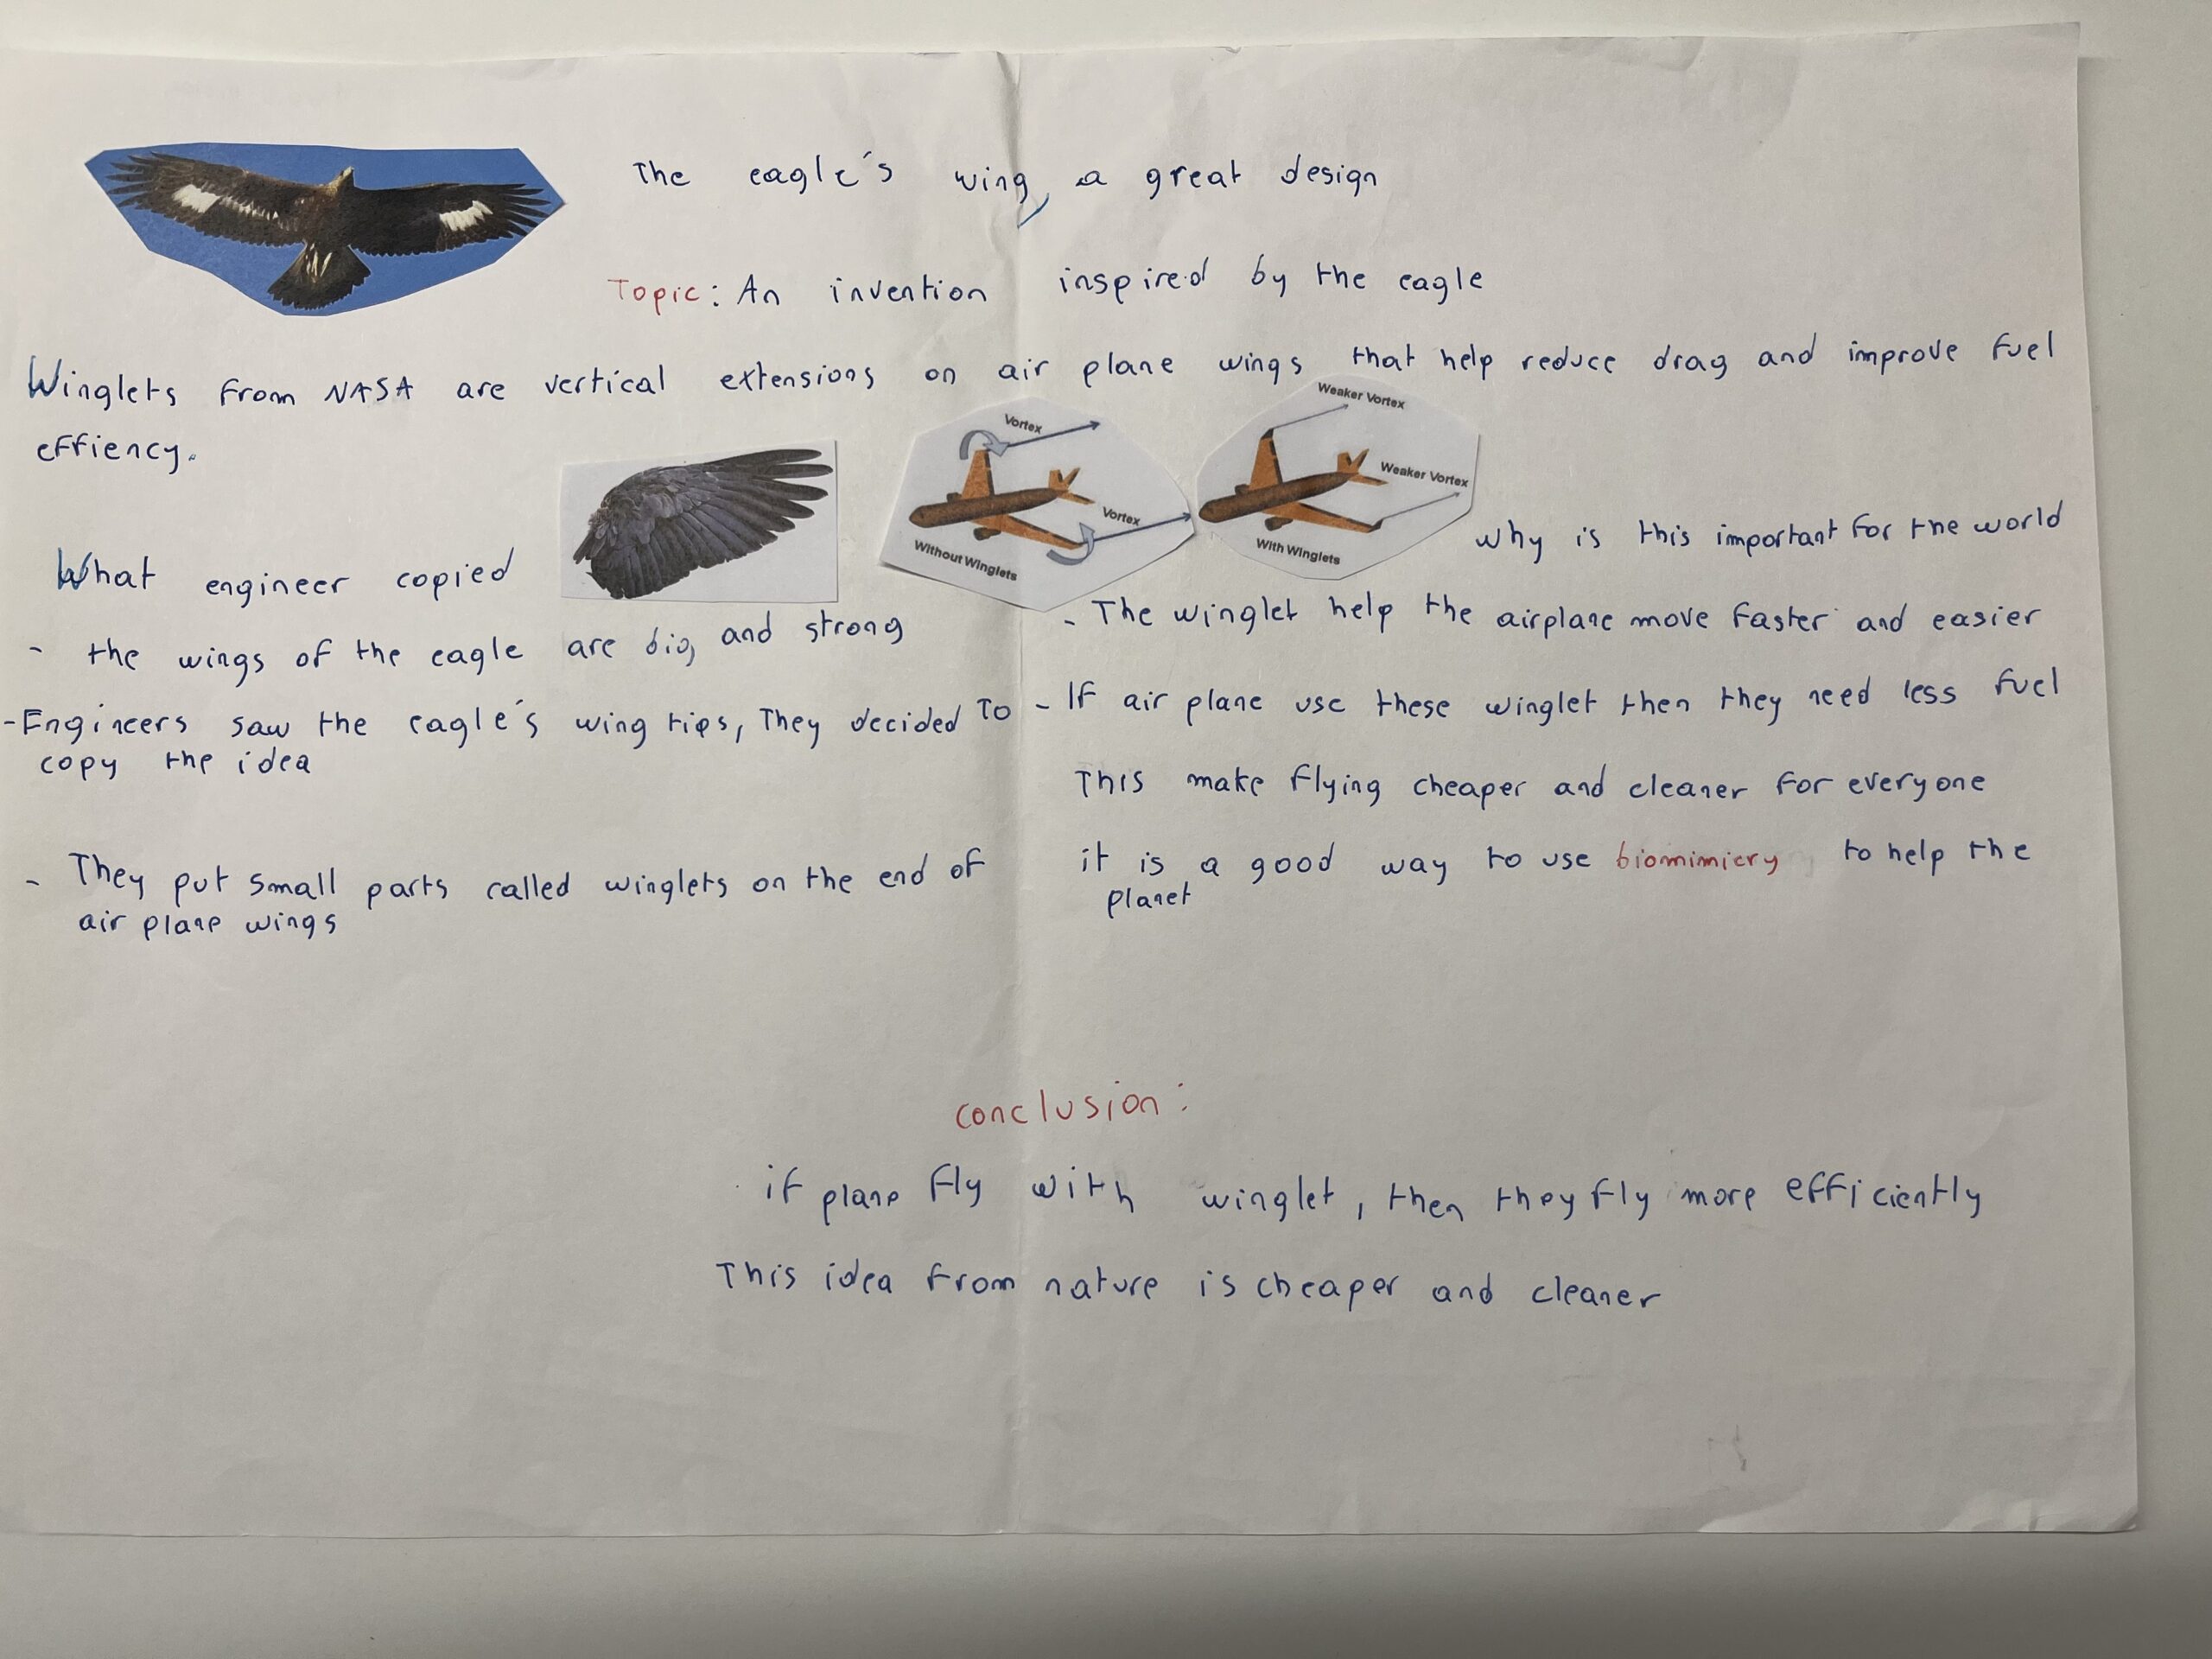 The eagle's wing, a great design
Topic: An invention inspired by the eagle
Winglets from NASA are vertical extensions on air plane wings that help reduce drag and improve fuel
effiency.
Vortex
Vortex
Without Winglets
Weaker Vortex
Weaker Vortex
With Winglets
What engineer copied
- the wings of the eagle are big and strong
- Engineers saw the eagle's wing tips, They decided To
copy the idea
- They put small parts called winglets on the end of
air plane wings
why is this important for the world
- The winglet help the airplane move faster and easier
- If air plane use these winglet then they need less fuel
This make flying cheaper and cleaner for everyone
it is a good way to use biomimicry to help the
planet
conclusion:
if plane fly with winglet, then they fly more efficiently
This idea from nature is cheaper and cleaner